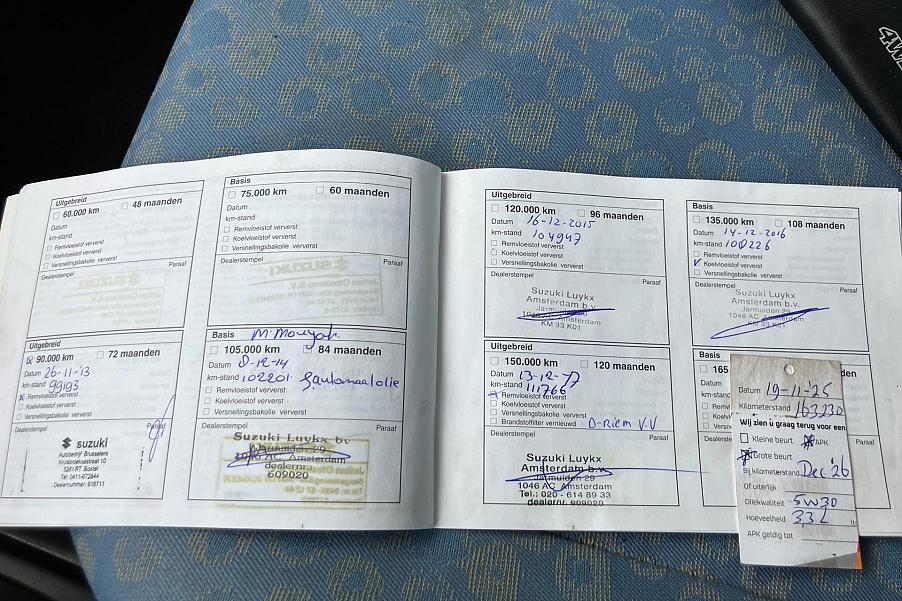 4W
Uitgebreid
60.000 km 48 maanden
Datum
km-stand
Remvloeistof ververst
Koelvloeistof ververst
Versnellingsbakolie ververst
Dealerstempel Paraaf
SUZUKI
Basis
75.000 km 60 maanden
Datum
km-stand
Remvloeistof ververst
Koelvloeistof ververst
Versnellingsbakolie ververst
Dealerstempel Paraaf
SUZUKI
Uitgebreid
90.000 km 72 maanden
Datum 26-11-13
km-stand 99193
Remvloeistof ververst
Koelvloeistof ververst
Versnellingsbakolie ververst
Dealerstempel Paraaf
SUZUKI
Autobedrijf Brusselers
5281 RT Boxtel
Tel: 0411-672844
Dealernummer: 616711
Basis
105.000 km 84 maanden
Datum 8-12-14
km-stand 102201
Remvloeistof ververst
Koelvloeistof ververst
Versnellingsbakolie ververst
Dealerstempel Paraaf
Suzuki Luykx bv
Jarmuiden 29
1046 AC Amsterdam
dealernr.
609020
Uitgebreid
120.000 km 96 maanden
Datum 16-12-2015
km-stand 104947
Remvloeistof ververst
Koelvloeistof ververst
Versnellingsbakolie ververst
Dealerstempel Paraaf
Suzuki Luykx
Amsterdam b.v.
Jarmuiden 29
1046 AC Amsterdam
KM 33 K01
Basis
135.000 km 108 maanden
Datum 14-12-2016
km-stand 108226
Remvloeistof ververst
Koelvloeistof ververst
Versnellingsbakolie ververst
Dealerstempel Paraaf
Suzuki Luykx
Amsterdam b.v.
Jarmuiden 29
1046 AC Amsterdam
KM 33 K01
Uitgebreid
150.000 km 120 maanden
Datum 13-12-17
km-stand 111766
Remvloeistof ververst
Koelvloeistof ververst
Versnellingsbakolie ververst
Brandstoffilter vernieuwd D-riem V.V
Dealerstempel Paraaf
Suzuki Luykx
Amsterdam b.v.
Jarmuiden 29
1046 AC Amsterdam
Tel.: 020 - 614 89 33
dealernr. 609020
Basis
165
Datum
km-stand
Dealerstempel
Datum 19-11-25
Kilometerstand 163230
Wij zien u graag terug voor een
Kleine beurt APK
Grote beurt
Bij kilometerstand Dec '26
Of uiterlijk
Oliekwaliteit 5W30
Hoeveelheid 33L ltr
APK geldig tot